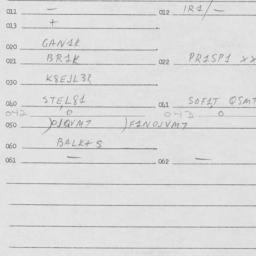 011 — 012 IR1/—
013 +
020 GAN1K
021 BR1K 022 PR1SP1 XX
030 K8EJL32
040 STEL81 041 SOF1T QSMT
042 0 043 0
050 )O1QVM7 )F1NOJVM7
060 BALK+S
061 — 062 —